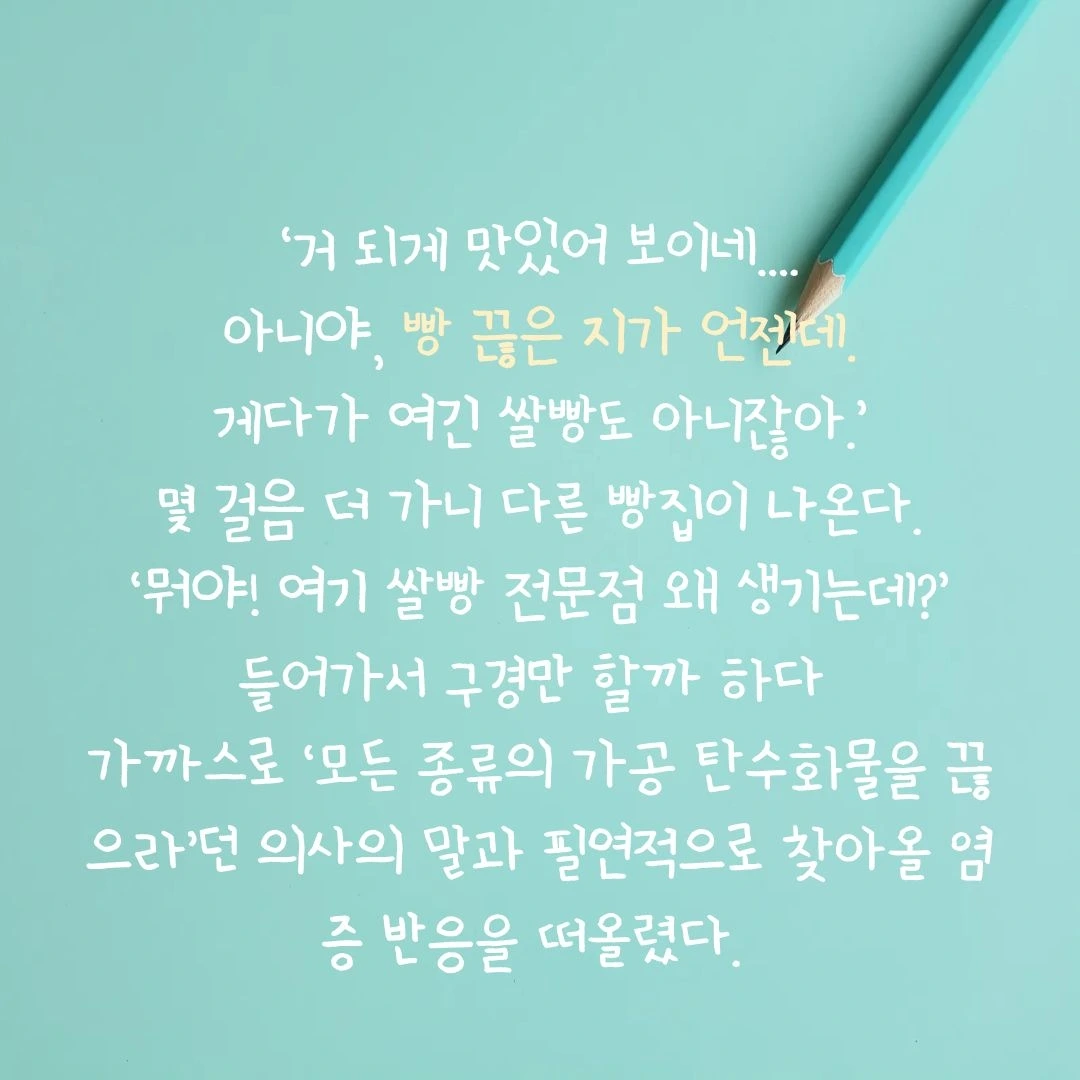 ‘거 되게 맛있어 보이네....
아니야, 빵 끊은 지가 언젠데.
게다가 여긴 쌀빵도 아니잖아.’
몇 걸음 더 가니 다른 빵집이 나온다.
‘뭐야! 여기 쌀빵 전문점 왜 생기는데?’
들어가서 구경만 할까 하다
가까스로 ‘모든 종류의 가공 탄수화물을 끊
으라’던 의사의 말과 필연적으로 찾아올 염
증 반응을 떠올렸다.